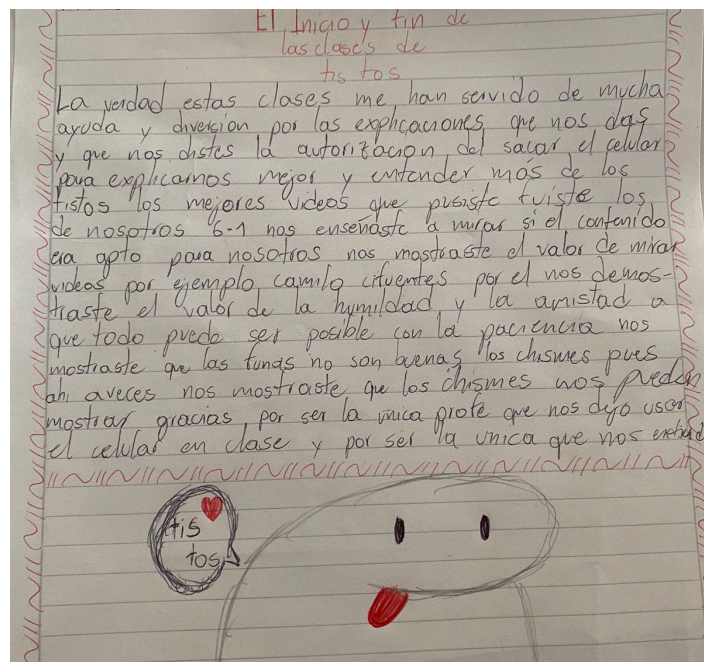 El Inicio y fin de
las clases de
tis tos
La verdad estas clases me han servido de mucha
ayuda y diversion por las explicaciones que nos das
y que nos distes la autorización del sacar el celular
para explicarnos mejor y entender más de los
tistos los mejores videos que pusiste fuiste los
de nosotros 6-1 nos enseñaste a mirar si el contenido
era apto para nosotros nos mostraste el valor de mirar
videos por ejemplo camilo cifuentes por el nos demos-
traste el valor de la humildad y la amistad a
que todo puede ser posible con la paciencia nos
mostraste que las funas no son buenas los chismes pues
ahi aveces nos mostraste que los chismes nos pueden
mostrar gracias por ser la unica profe que nos dejo usar
el celular en clase y por ser la unica que nos
tis
tos